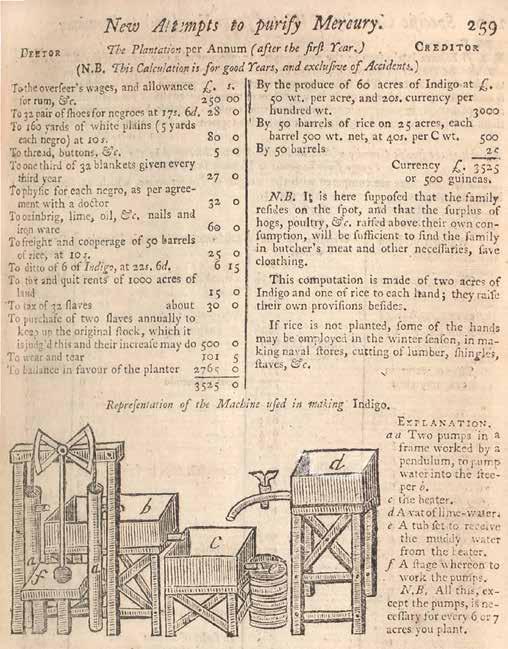 New Attempts to purify Mercury. 259
DEBTOR The Plantation per Annum (after the first Year.) CREDITOR
(N.B. This Calculation is for good Years, and exclusive of Accidents.)
To the overseer's wages, and allowance £. s.
for rum, &c. 250 00
To 32 pair of shoes for negroes at 17s. 6d. 28 0
To 160 yards of white plains (5 yards
each negro) at 10 s. 80 0
To thread, buttons, &c. 5 0
To one third of 32 blankets given every
third year 27 0
To physic for each negro, as per agree-
ment with a doctor 32 0
To ozinbrig, lime, oil, &c. nails and
iron ware 60 0
To freight and cooperage of 50 barrels
of rice, at 10 s. 25 0
To ditto of 6 of Indigo, at 22s. 6d. 6 15
To tax and quit rents of 1000 acres of
land 15 0
To tax of 32 slaves about 30 0
To purchase of two slaves annually to
keep up the original stock, which it
is judg'd this and their increase may do 500 0
To wear and tear 101 5
To ballance in favour of the planter 2765 0
3525 0
By the produce of 60 acres of Indigo at £.
50 wt. per acre, and 20s. currency per
hundred wt. 3000
By 50 barrels of rice on 25 acres, each
barrel 500 wt. net, at 40s. per C wt. 500
By 50 barrels 25
Currency £. 3525
or 500 guineas.
N.B. It is here supposed that the family
resides on the spot, and that the surplus of
hogs, poultry, &c. raised above their own con-
sumption, will be sufficient to find the family
in butcher's meat and other necessaries, save
cloathing.
This computation is made of two acres of
Indigo and one of rice to each hand; they raise
their own provisions besides.
If rice is not planted, some of the hands
may be employed in the winter season, in ma-
king naval stores, cutting of lumber, shingles,
staves, &c.
Representation of the Machine used in making Indigo.
EXPLANATION.
a a Two pumps in a
frame worked by a
pendulum, to pump
water into the stee-
per b.
c the beater.
d A vat of lime-water.
e A tub set to receive
the muddy water
from the beater.
f A stage whereon to
work the pumps.
N.B. All this, ex-
cept the pumps, is ne-
cessary for every 6 or 7
acres you plant.
a
f
a
b
c
d